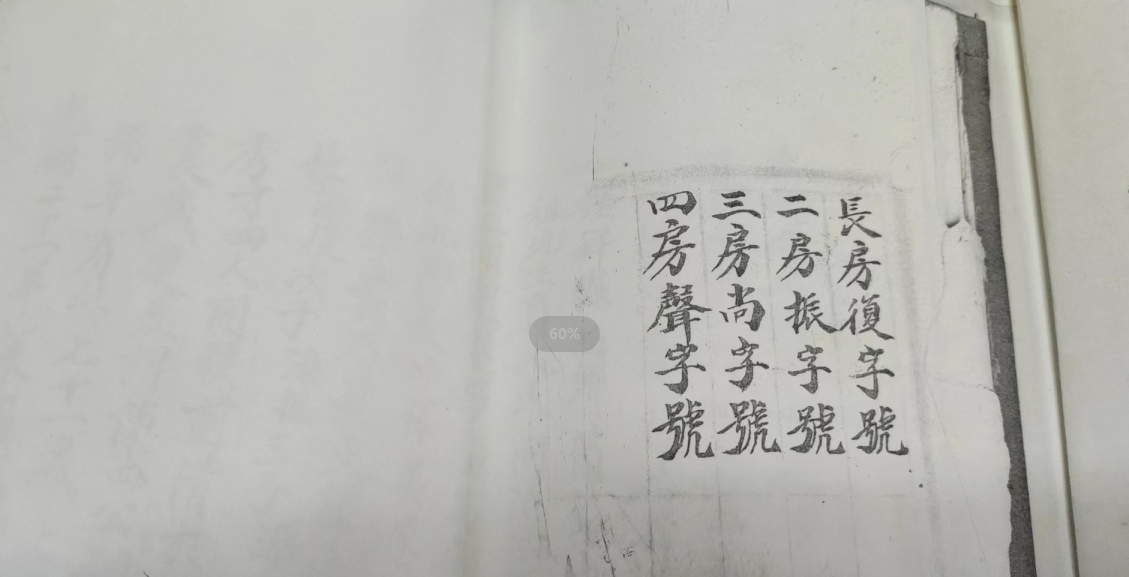 長房復字號
二房振字號
三房尚字號
四房聲字號
60%